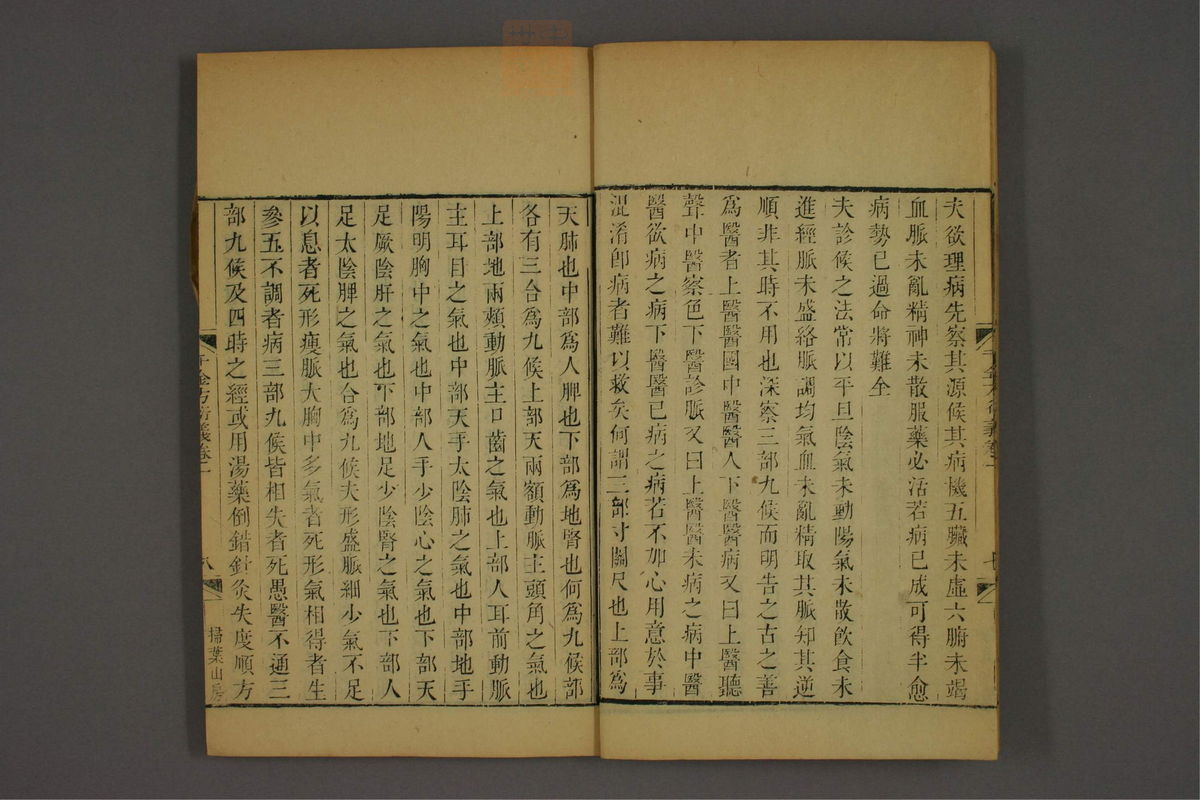 夫欲理病先察其源候其病機五臟未虛六腑未竭
血脈未亂精神未散服藥必活若病已成可得半愈
病勢已過命將難全
夫診候之法常以平旦陰氣未動陽氣未散飲食未
進經脈未盛絡脈調均氣血未亂精取其脈知其逆
順非其時不用也深察三部九候而明告之古之善
爲醫者上醫醫國中醫醫人下醫醫病又曰上醫聽
聲中醫察色下醫診脈又曰上醫醫未病之病中醫
醫欲病之病下醫醫已病之病若不加心用意於事
混淆卽病者難以救矣何謂三部寸關尺也上部爲
天肺也中部爲人脾也下部爲地腎也何爲九候部
各有三合爲九候上部天兩額動脈主頭角之氣也
上部地兩頰動脈主口齒之氣也上部人耳前動脈
主耳目之氣也中部天手太陰肺之氣也中部地手
陽明胸中之氣也中部人手少陰心之氣也下部天
足厥陰肝之氣也下部地足少陰腎之氣也下部人
足太陰脾之氣也合爲九候夫形盛脈細少氣不足
以息者死形瘦脈大胸中多氣者死形氣相得者生
參五不調者病三部九候皆相失者死愚醫不通三
部九候及四時之經或用湯藥倒錯針灸失度順方
千金方衍義卷一
八
掃葉山房